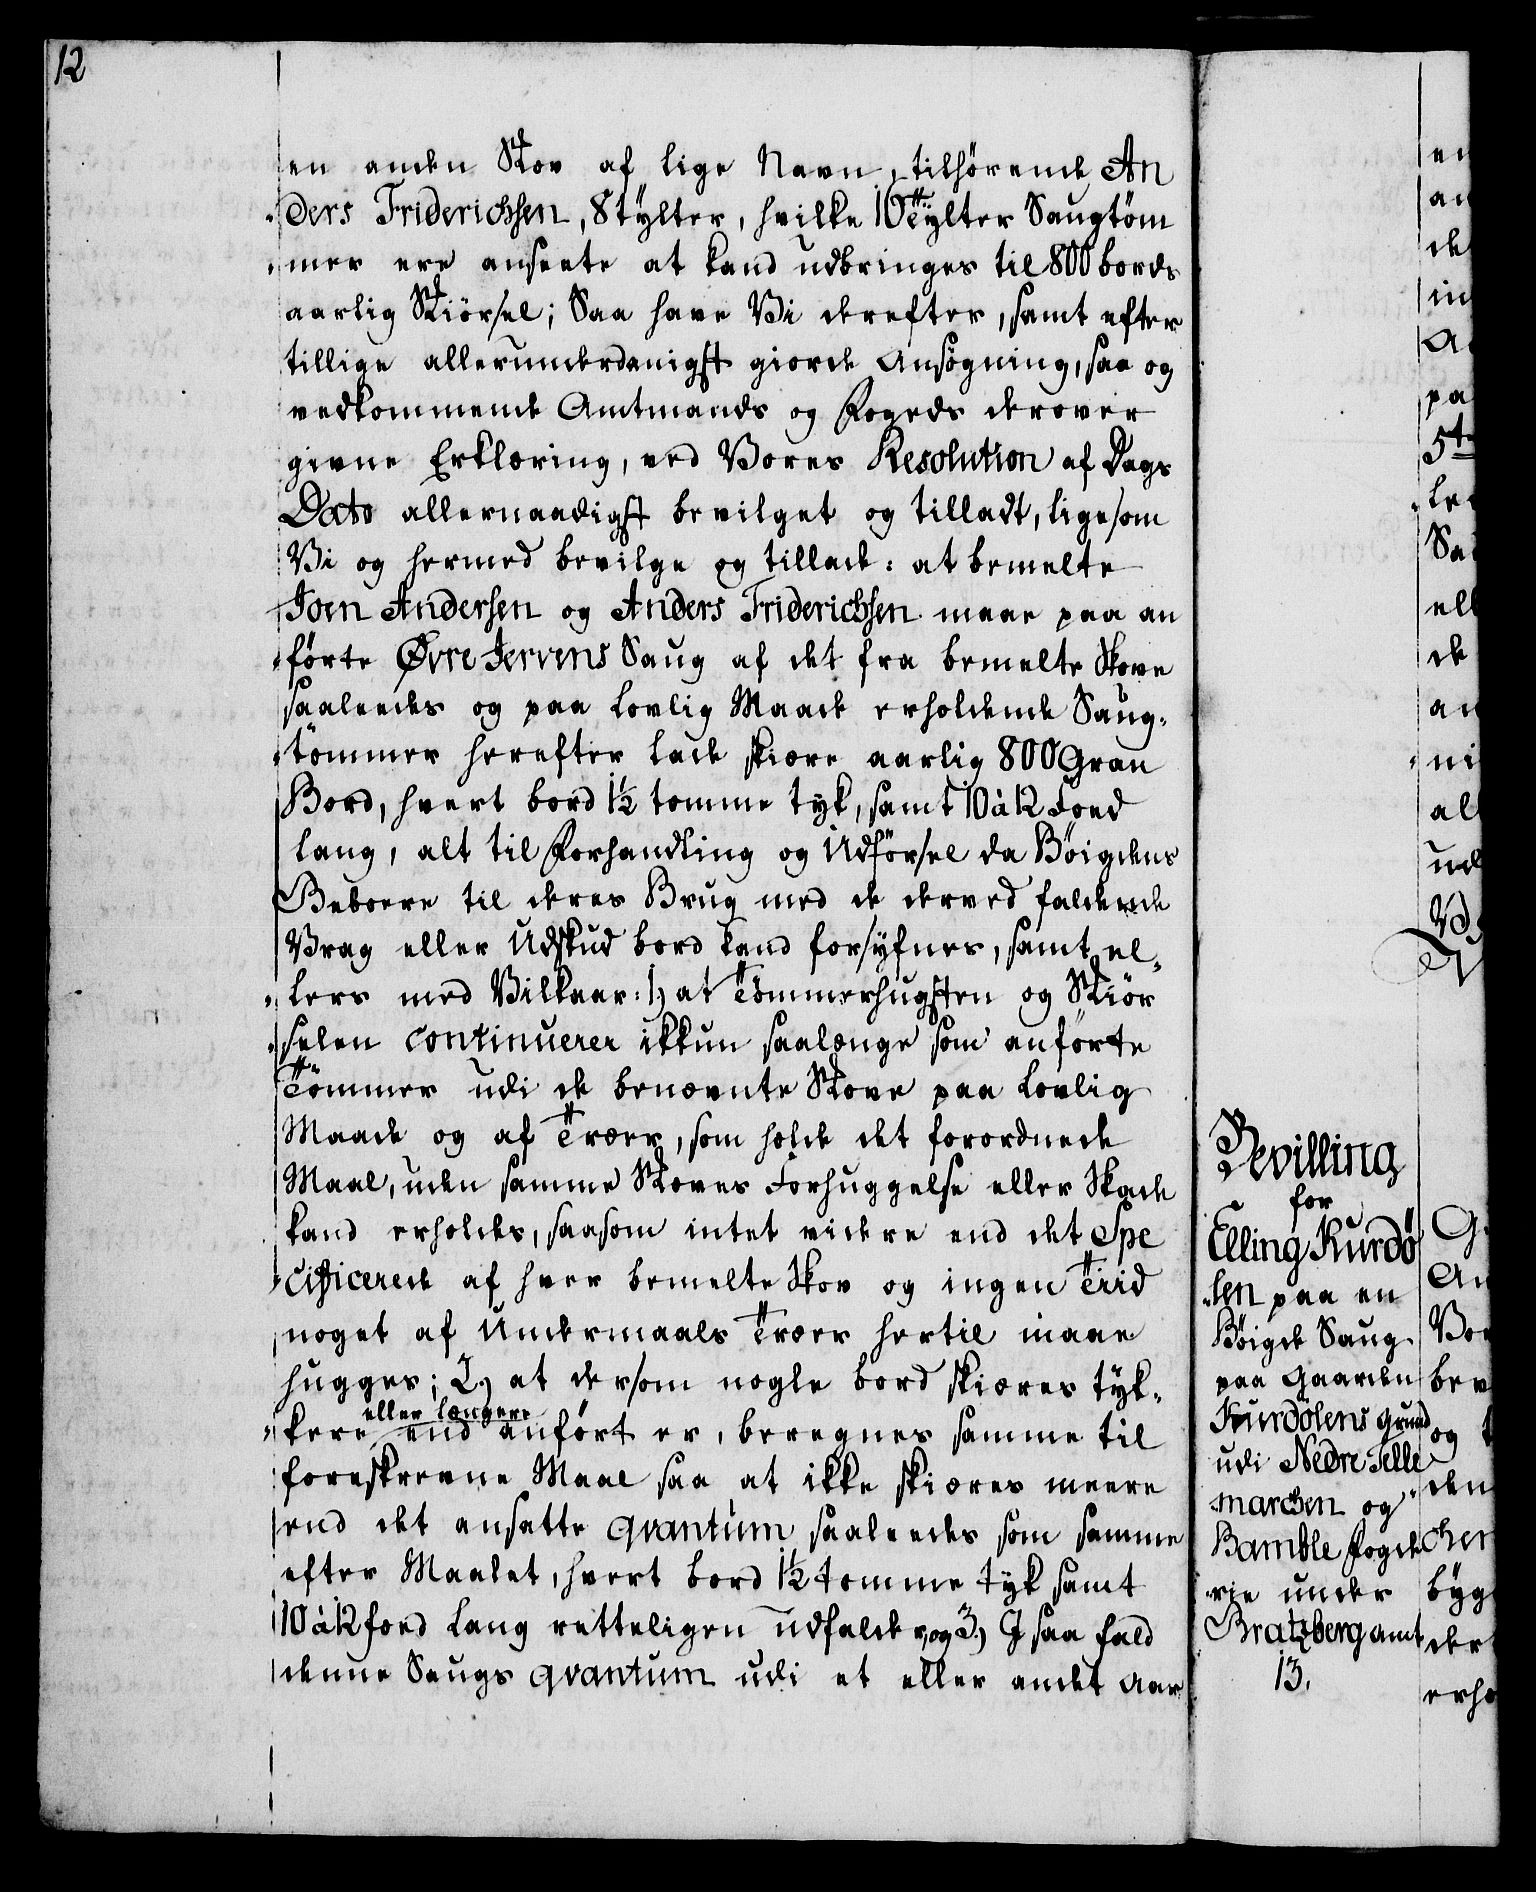 12
en anden Skov af lige Navn, tilhørende An
ders Friderichsen, 8 tylter, hvilke 10 Tylter Saugtöm
mer ere anseete at kand udbringes til 800 bords
aarlig Skiörsel; Saa have Vi derefter, samt efter
tillige allerunderdanigst giorde Ansögning, saa og
vedkommende Amtmands og Fogeds derover
givne Erklæring, ved Vores Resolution af Dags
Dato allernaadigst bevilget og tilladt, ligesom
Vi og hermed bevilge og tillade: at bemelte
Joen Andersen og Anders Friderichsen maae paa an
førte Øvre Jervens Saug af det fra bemelte Skove
saaleedes og paa Lovlig Maade erholdende Saug-
tömmer herefter lade skiære aarlig 800 Gran
Bord, hvert bord 1½ tomme tyk, samt 10 à 12 Foed
lang, alt til Forhandling og Udförsel da Böigdens
Beboere til deres Brug med de derved faldende
Vrag eller Udskud bord kand forsyfnes, samt el-
lers med Vilkaar: 1) at Tömmerhugsten og Skiör
selen continuerer ikkun saalænge som anförte
Tömmer udi de benævnte Skove paa Lovlig
Maade og af Træer, som holde det forordnede
Maal, uden samme Skoves Forhuggelse eller Skade
kand erholdes, saasom intet videre end det Spe
cificerede af hver bemelte Skov og ingen Tiid
noget af Undermaals Træer hertil maae
hugges; 2.) at dersom nogle bord skiæres tyk-
kere eller længere end anfört er, beregnes samme til
foreskrevne Maal saa at ikke skiæres meere
end det ansatte qvantum saaleedes som samme
efter Maalet, hvert bord 1½ tomme tyk samt
10 à 12 foed Lang retteligen udfalder, og 3.) J saa fald
denne Saugs qvantum udi et eller andet Aar
Bevilling
for
Elling Kurdö
len paa en
Böigde Saug
paa Gaarden
Kurdölens Grund
udi Nedre Telle
marchen og
Bamble Fogde
rie under
Bratzberg amt
13.